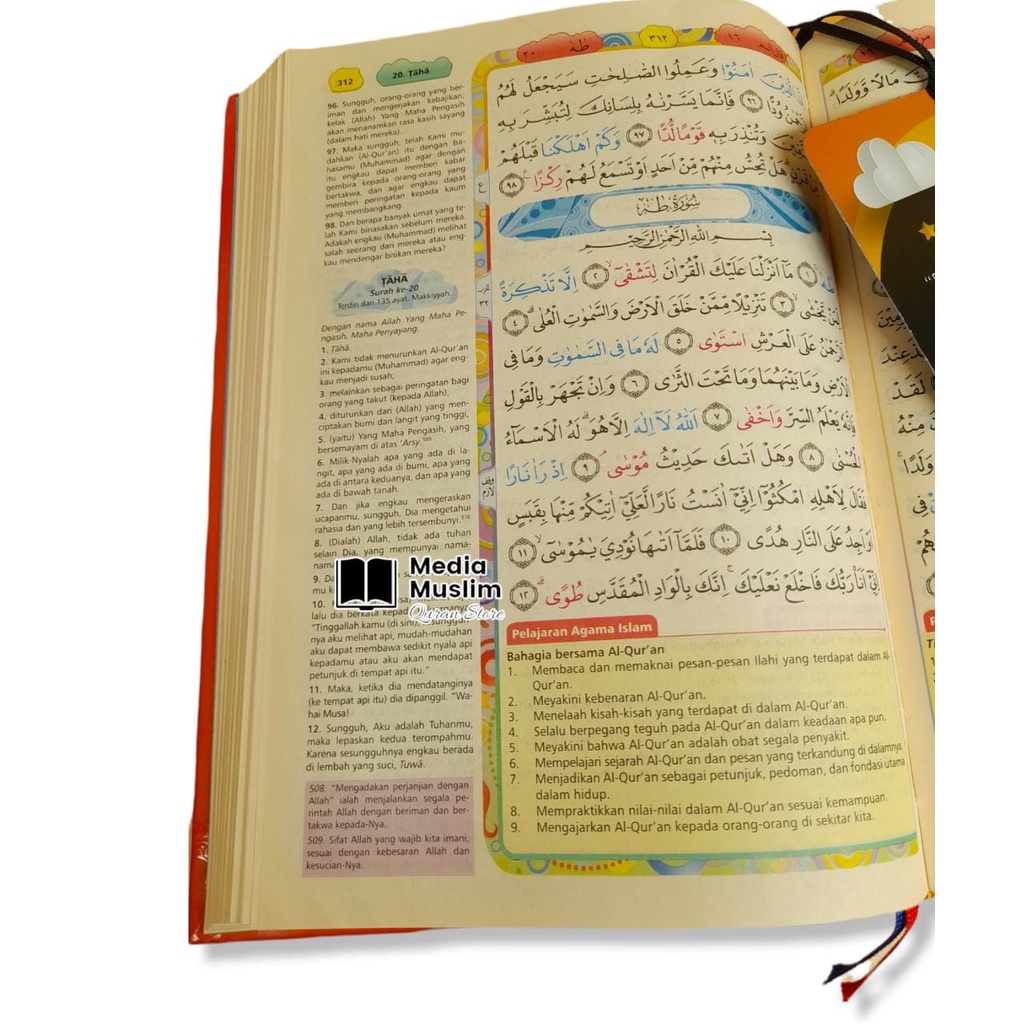 312
20. Ṭāhā
96. Sungguh, orang-orang yang ber-
iman dan mengerjakan kebajikan,
kelak (Allah) Yang Maha Pengasih
akan menanamkan rasa kasih sayang
(dalam hati mereka).
97. Maka sungguh, telah Kami mu-
dahkan (Al-Qur'an) itu dengan ba-
hasamu (Muhammad) agar dengan
itu engkau dapat memberi kabar
gembira kepada orang-orang yang
bertakwa, dan agar engkau dapat
memberi peringatan kepada kaum
yang membangkang.
98. Dan berapa banyak umat yang te-
lah Kami binasakan sebelum mereka.
Adakah engkau (Muhammad) melihat
salah seorang dari mereka atau eng-
kau mendengar bisikan mereka?
ṬĀHĀ
Surah ke-20
Terdiri dari 135 ayat, Makkiyyah.
Dengan nama Allah Yang Maha Pe-
ngasih, Maha Penyayang.
1. Ṭāhā.
2. Kami tidak menurunkan Al-Qur'an
ini kepadamu (Muhammad) agar eng-
kau menjadi susah;
3. melainkan sebagai peringatan bagi
orang yang takut (kepada Allah),
4. diturunkan dari (Allah) yang men-
ciptakan bumi dan langit yang tinggi,
5. (yaitu) Yang Maha Pengasih, yang
bersemayam di atas 'Arsy.⁵⁰⁹
6. Milik-Nyalah apa yang ada di la-
ngit, apa yang ada di bumi, apa yang
ada di antara keduanya, dan apa yang
ada di bawah tanah.
7. Dan jika engkau mengeraskan
ucapanmu, sungguh, Dia mengetahui
rahasia dan yang lebih tersembunyi.⁵¹⁰
8. (Dialah) Allah, tidak ada tuhan
selain Dia, yang mempunyai nama-
9.
10.
lalu dia berkata
"Tinggallah kamu (di sini),
nya aku melihat api, mudah-mudahan
aku dapat membawa sedikit nyala api
kepadamu atau aku akan mendapat
petunjuk di tempat api itu."
11. Maka, ketika dia mendatanginya
(ke tempat api itu) dia dipanggil. "Wa-
hai Musa!
12. Sungguh, Aku adalah Tuhanmu,
maka lepaskan kedua terompahmu.
Karena sesungguhnya engkau berada
di lembah yang suci, Tuwā.
508. "Mengadakan perjanjian dengan
Allah" ialah menjalankan segala pe-
rintah Allah dengan beriman dan ber-
takwa kepada-Nya.
509. Sifat Allah yang wajib kita imani,
sesuai dengan kebesaran Allah dan
kesucian-Nya.
Media
Muslim
Qur'an Store
١٦
٣١٢
طٰهٰ ٢٠
اٰمَنُوْا وَعَمِلُوا الصّٰلِحٰتِ سَيَجْعَلُ لَهُمُ
وُدًّا ٩٦ فَاِنَّمَا يَسَّرْنٰهُ بِلِسَانِكَ لِتُبَشِّرَ بِهِ
وَتُنْذِرَ بِهٖ قَوْمًا لُّدًّا ٩٧ وَكَمْ اَهْلَكْنَا قَبْلَهُمْ
هَلْ تُحِسُّ مِنْهُمْ مِّنْ اَحَدٍ اَوْ تَسْمَعُ لَهُمْ رِكْزًا ٩٨
سُوْرَةُ طٰهٰ
بِسْمِ اللّٰهِ الرَّحْمٰنِ الرَّحِيْمِ
١ مَآ اَنْزَلْنَا عَلَيْكَ الْقُرْاٰنَ لِتَشْقٰٓى ٢ اِلَّا تَذْكِرَةً
يَّخْشٰى ٣ تَنْزِيْلًا مِّمَّنْ خَلَقَ الْاَرْضَ وَالسَّمٰوٰتِ الْعُلٰى ٤
عَلَى الْعَرْشِ اسْتَوٰى ٥ لَهٗ مَا فِى السَّمٰوٰتِ وَمَا فِى
الْاَرْضِ وَمَا بَيْنَهُمَا وَمَا تَحْتَ الثَّرٰى ٦ وَاِنْ تَجْهَرْ بِالْقَوْلِ
فَاِنَّهٗ يَعْلَمُ السِّرَّ وَاَخْفٰى ٧ اَللّٰهُ لَآ اِلٰهَ اِلَّا هُوَ لَهُ الْاَسْمَاۤءُ
الْحُسْنٰى ٨ وَهَلْ اَتٰىكَ حَدِيْثُ مُوْسٰى ٩ اِذْ رَاٰ نَارًا
فَقَالَ لِاَهْلِهِ امْكُثُوْٓا اِنِّيْٓ اٰنَسْتُ نَارًا لَّعَلِّيْٓ اٰتِيْكُمْ مِّنْهَا بِقَبَسٍ
اَوْ اَجِدُ عَلَى النَّارِ هُدًى ١٠ فَلَمَّآ اَتٰىهَا نُوْدِيَ يٰمُوْسٰٓى ١١
اِنِّيْٓ اَنَا۠ رَبُّكَ فَاخْلَعْ نَعْلَيْكَ اِنَّكَ بِالْوَادِ الْمُقَدَّسِ طُوًى ١٢
Pelajaran Agama Islam
Bahagia bersama Al-Qur'an
1. Membaca dan memaknai pesan-pesan Ilahi yang terdapat dalam Al-
Qur'an.
2. Meyakini kebenaran Al-Qur'an.
3. Menelaah kisah-kisah yang terdapat di dalam Al-Qur'an.
4. Selalu berpegang teguh pada Al-Qur'an dalam keadaan apa pun.
5. Meyakini bahwa Al-Qur'an adalah obat segala penyakit.
6. Mempelajari sejarah Al-Qur'an dan pesan yang terkandung di dalamnya
7. Menjadikan Al-Qur'an sebagai petunjuk, pedoman, dan fondasi utama
dalam hidup.
8. Mempraktikkan nilai-nilai dalam Al-Qur'an sesuai kemampuan.
9. Mengajarkan Al-Qur'an kepada orang-orang di sekitar kita.
مَالًا وَّوَلَدًا